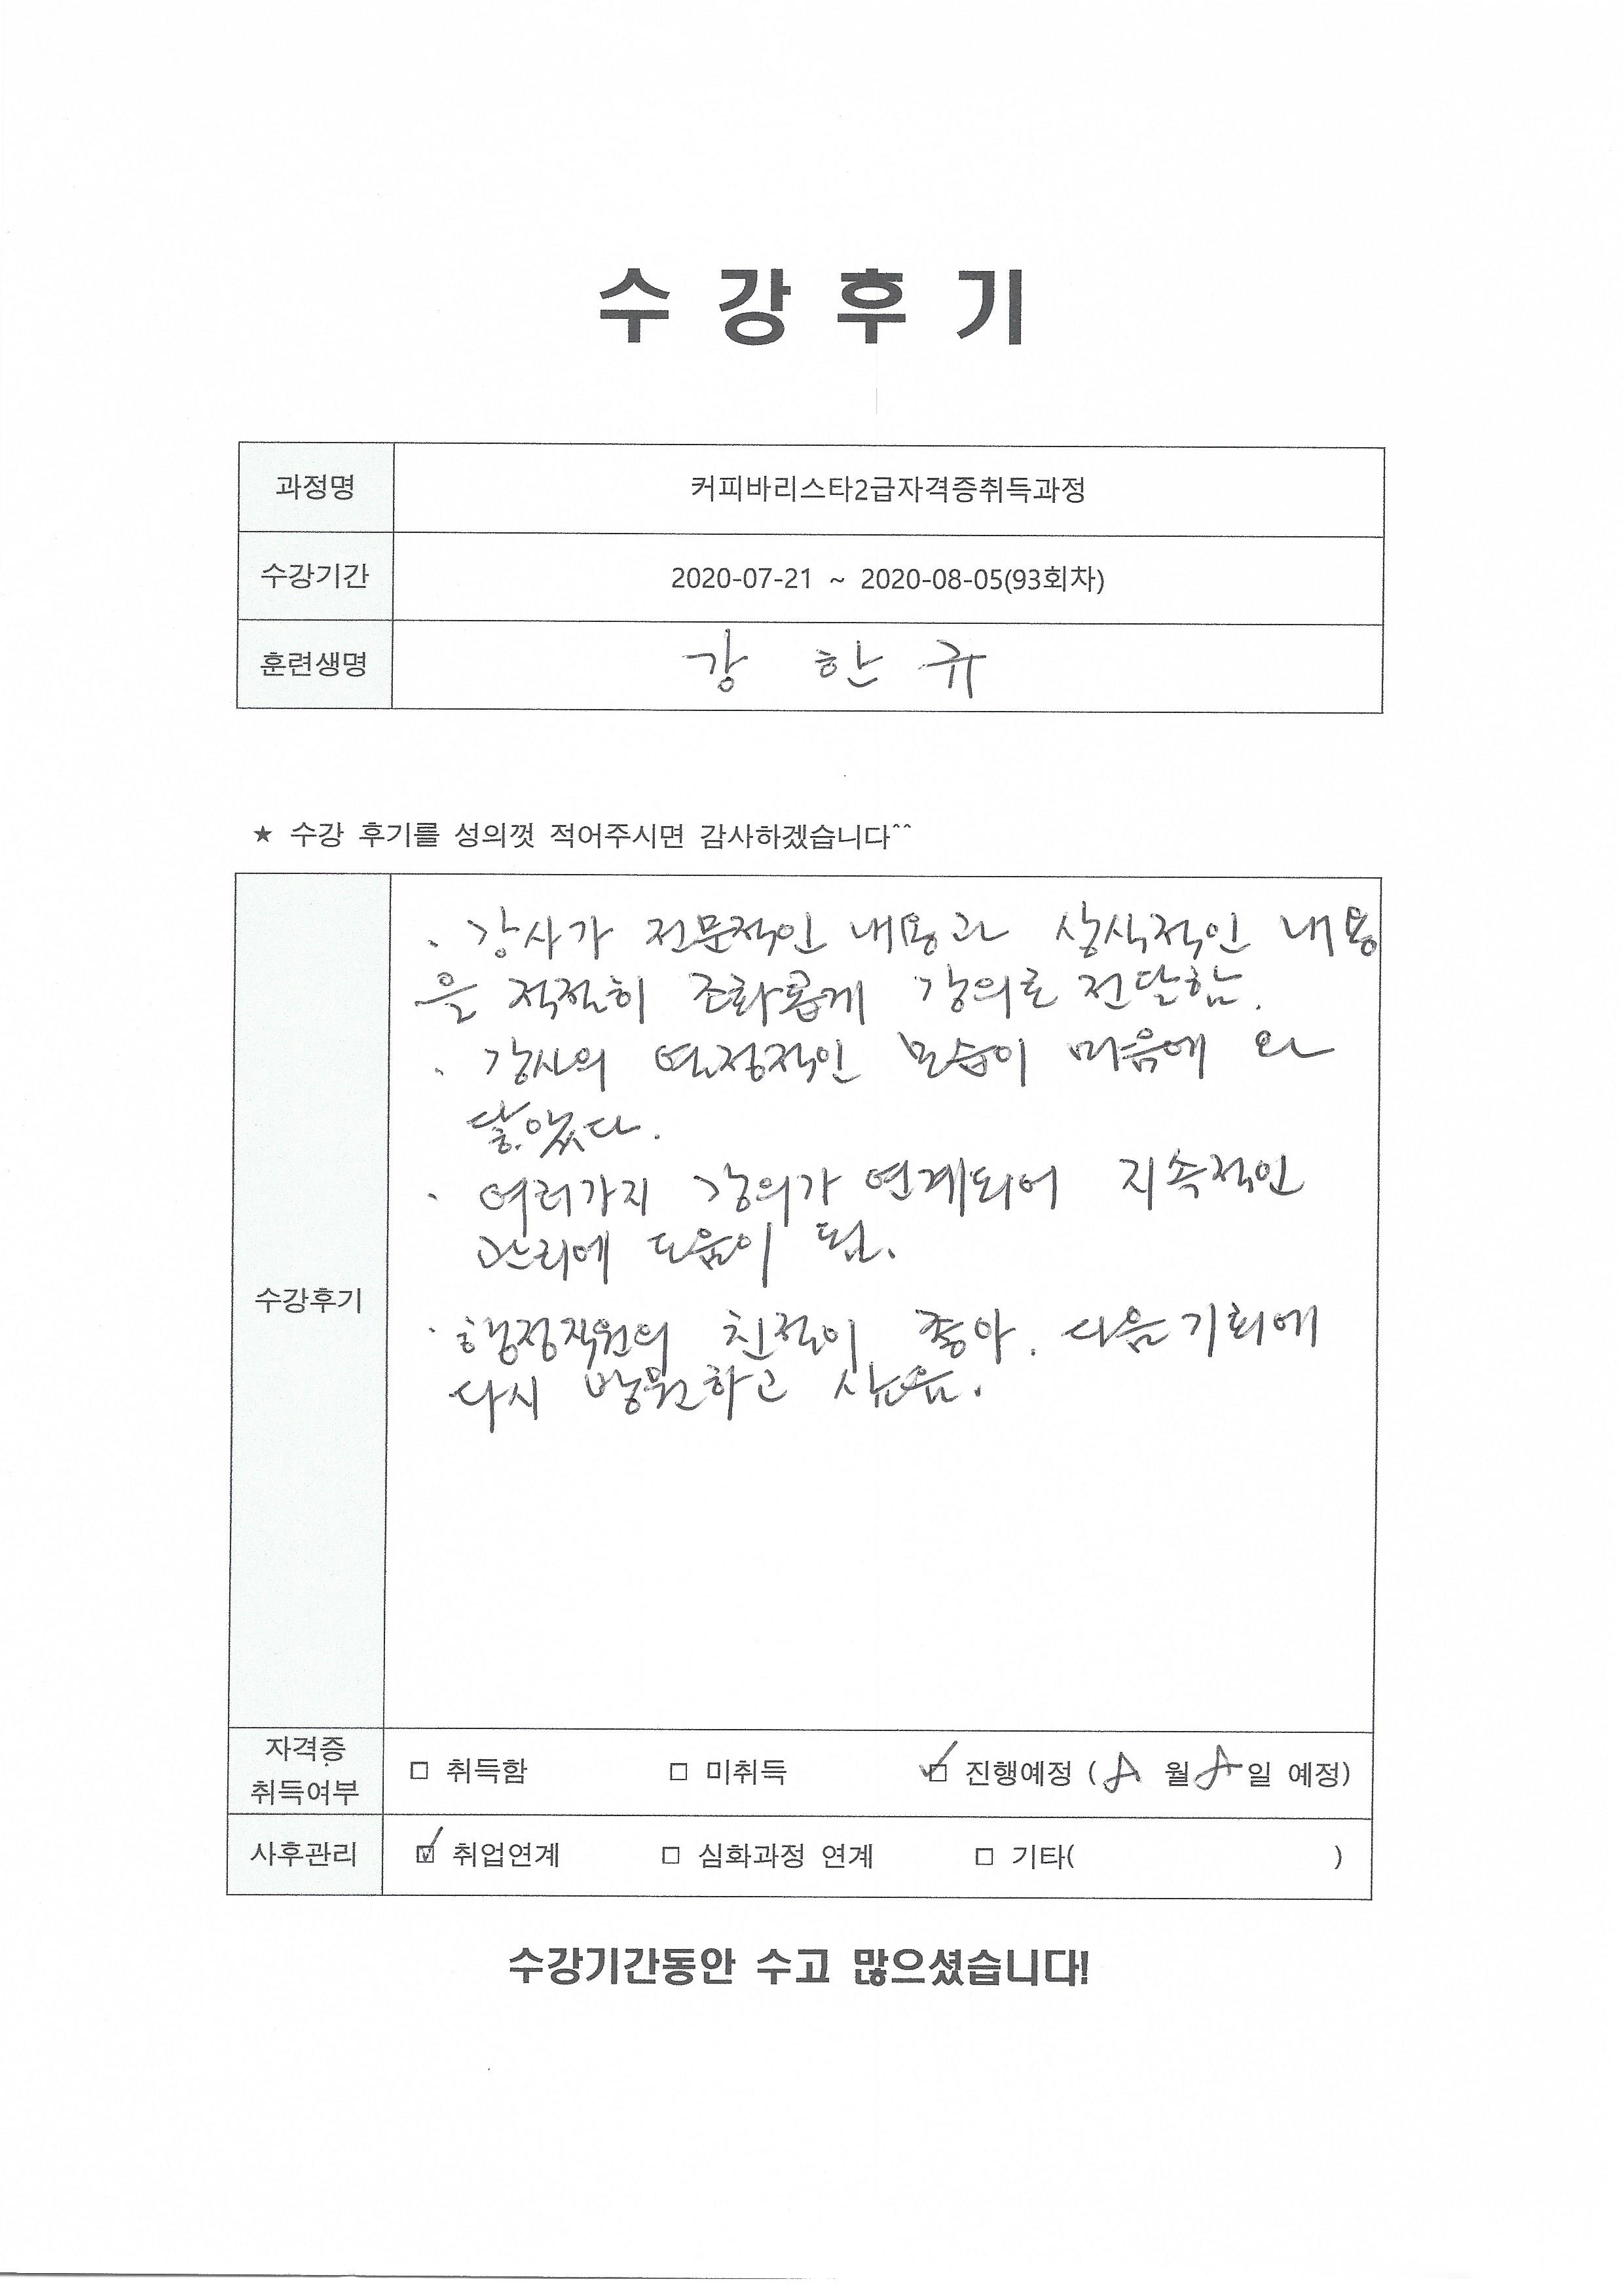 수 강 후 기
과정명 커피바리스타2급자격증취득과정
수강기간 2020-07-21 ~ 2020-08-05(93회차)
훈련생명 강 한 규
★ 수강 후기를 성의껏 적어주시면 감사하겠습니다^^
· 강사가 전문적인 내용과 상식적인 내용
을 적절히 조화롭게 강의로 전달함.
· 강사의 열정적인 모습이 마음에 와
닿았다.
· 여러가지 강의가 연계되어 지속적인
관리에 도움이 됨.
수강후기
· 행정직원의 친절이 좋아. 다음기회에
다시 방문하고 싶음.
자격증
취득여부 □ 취득함 □ 미취득 ☑ 진행예정 ( 8 월 8 일 예정)
사후관리 ☑ 취업연계 □ 심화과정 연계 □ 기타( )
수강기간동안 수고 많으셨습니다!